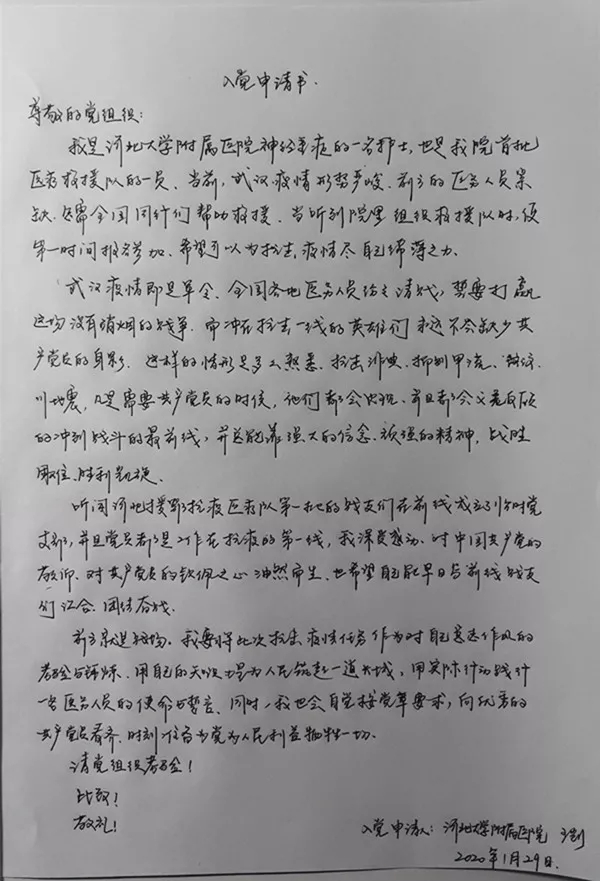 入党申请书.
尊敬的党组织:
我是河北大学附属医院神经重症的一名护士,也是我院首批
医疗救援队的一员。当前,武汉疫情形势严峻,前方的医务人员紧
缺,急需全国同行们帮助救援。当听到院里组织救援队时,便
第一时间报名参加、希望可以为抗击疫情尽自己绵薄之力。
武汉疫情即是军令、全国各地医务人员纷纷请战,誓要打赢
这场没有硝烟的战争。而冲在抗击一线的英雄们永远不会缺少共
产党员的身影。这样的情形是多么熟悉、抗击非典、抑制甲流、
川地震,凡是需要共产党员的时候,他们都会出现、并且都会义无反顾
的冲到战斗的最前线,并且能靠强大的信念、顽强的精神,战胜
困难、胜利凯旋。
听闻河北援鄂抗疫医疗队第一批的战友们在前线成立了临时党
支部,并且党员都是工作在抗疫的第一线,我深受感动、对中国共产党的
敬仰、对共产党员的钦佩之心油然而生、也希望自己能早日与前线战友
们汇合、团结奋战。
前方就是战场。我要将此次抗击疫情任务作为对自己意志作风的
考验与锤炼、用自己的天使之翼为人民筑起一道长城,用实际行动践行
一名医务人员的使命与誓言、同时,我也会自觉按党章要求,向优秀的
共产党员看齐、时刻准备为党为人民利益牺牲一切。
请党组织考验!
此致!
敬礼!
入党申请人:河北大学附属医院
2020年1月29日.